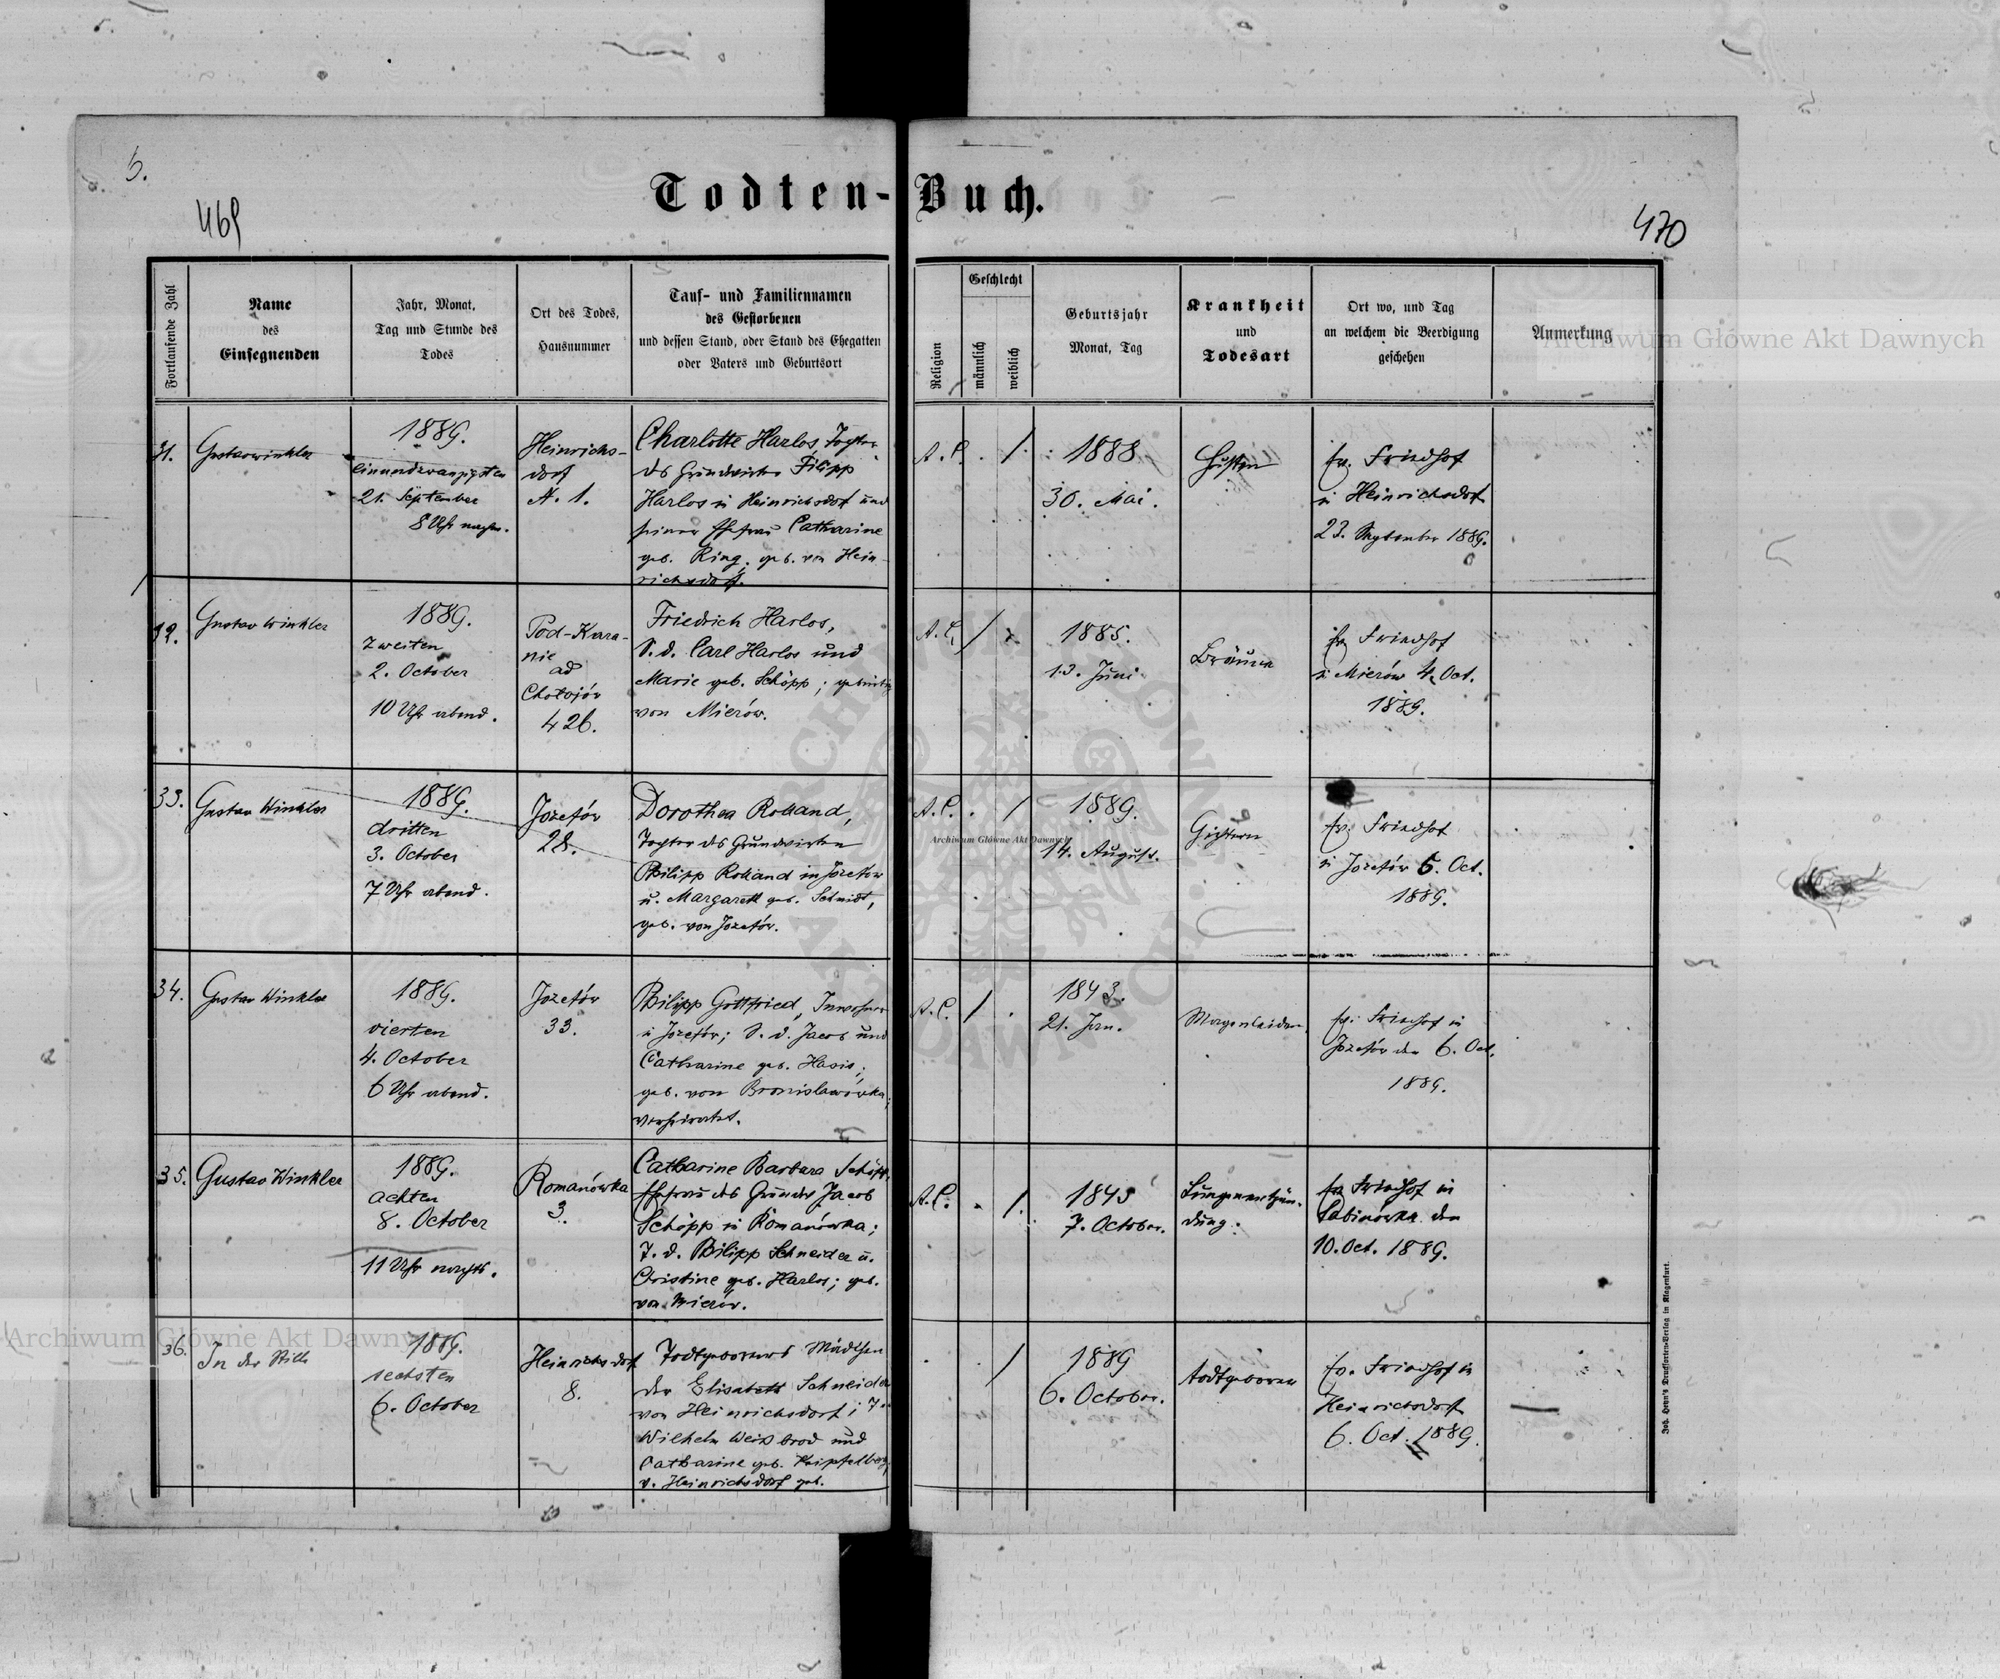 5.
469
470
Todten-Buch.
Fortlaufende Zahl
Name
des
Einsegnenden
Jahr, Monat,
Tag und Stunde des
Todes
Ort des Todes,
Hausnummer
Tauf- und Familiennamen
des Gestorbenen
und dessen Stand, oder Stand des Ehegatten
oder Vaters und Geburtsort
Religion
Geschlecht
männlich
weiblich
Geburtsjahr
Monat, Tag
Krankheit
und
Todesart
Ort wo, und Tag
an welchem die Beerdigung
geschehen
Anmerkung
31.
Gustav Winkler
1889.
einundzwanzigsten
21. September
8 Uhr nachm.
Heinrichs-
dorf
N. 1.
Charlotte Harlos, Tochter
des Grundwirten Filipp
Harlos in Heinrichsdorf und
seiner Ehefrau Catharine
geb. Ring, geb. von Hein-
richsdorf.
A. C. . /.
1888
30. Mai.
Husten
ev. Friedhof
in Heinrichsdorf
23. September 1889.
32.
Gustav Winkler
1889.
zweiten
2. October
10 Uhr abend.
Pod-Kura-
nie
ad
Chotojów
426.
Friedrich Harlos,
S. d. Carl Harlos und
Marie geb. Schöpp; gebürtig
von Mierów.
A. C. /
1885.
13. Juni
Bräune
ev. Friedhof
in Mierów 4. Oct.
1889.
33.
Gustav Winkler
1889.
dritten
3. October
7 Uhr abend.
Jozefów
28.
Dorothea Rolland,
Tochter des Grundwirten
Philipp Rolland in Józefów
u. Margareth geb. Schmidt,
geb. von Jozefów.
A. C. . /
1889.
14. August.
ev. Friedhof
in Jozefów 5. Oct.
1889.
34.
Gustav Winkler
1889.
vierten
4. October
6 Uhr abend.
Jozefów
33.
Philipp Gottfried, Inwohner
in Józefów; S. d. Jacob und
Catharine geb. Hasis;
geb. von Bronislawówka;
verheiratet.
A. C. / .
1843.
21. Jan.
Magenleiden.
ev. Friedhof in
Józefów den 6. Oct.
1889.
35.
Gustav Winkler
1889.
achten
8. October
11 Uhr nachts.
Romanówka
3.
Catharine Barbara Schöpp,
Ehefrau des Grundw. Jacob
Schöpp in Romanówka;
T. d. Philipp Schneider u.
Christine geb. Harlos; geb.
von Mierów.
A. C. . /.
1845
7. October.
Lungenentzün-
dung.
ev. Friedhof in
Sabinówka den
10. Oct. 1889.
36.
In der Stille
1889.
sechsten
6. October
Heinrichsdorf
8.
Todtgeborenes Mädchen
der Elisabeth Schneider
von Heinrichsdorf; T. d.
Wilhelm Weisbrod und
Catharine geb.
v. Heinrichsdorf geb.
. /
1889
6. October.
todtgeboren
ev. Friedhof in
Heinrichsdorf
6. Oct. 1889.
Joh. Heyn's Drucksorten-Verlag in Klagenfurt.
Archiwum Główne Akt Dawnych
Archiwum Główne Akt Dawnych
Archiwum Główne Akt Dawnych